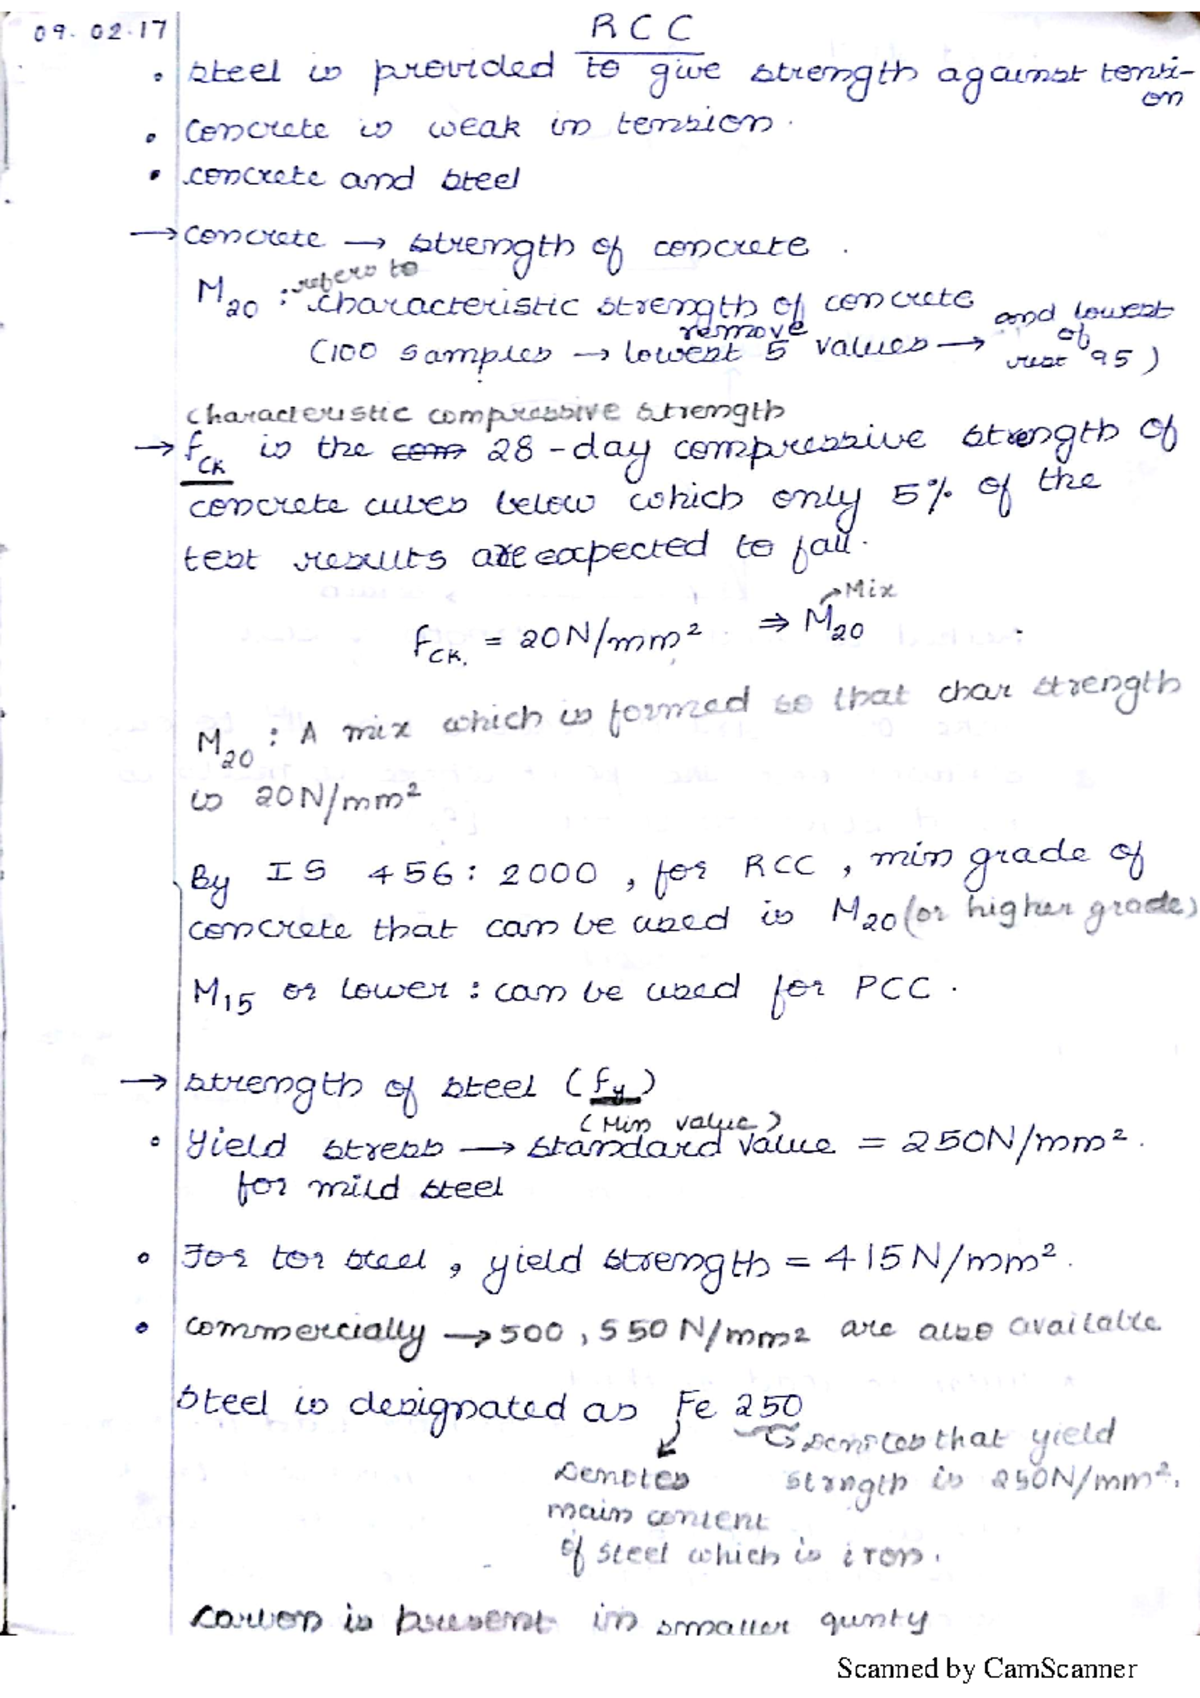 09.02.17
RCC
• steel is provided to give strength against tensi-
on
• concrete is weak in tension.
• concrete and steel
→ concrete → strength of concrete.
M20 : refers to characteristic strength of concrete
(100 samples → remove lowest 5 values → and lowest of rest 95)
characteristic compressive strength
→ fck is the com 28-day compressive strength of
concrete cubes below which only 5% of the
test results are expected to fall.
fck. = 20N/mm² ⇒ M20 → Mix
M20 : A mix which is formed so that char strength
is 20N/mm²
By IS 456: 2000, for RCC, min grade of
concrete that can be used is M20 (or higher grade)
M15 or lower : can be used for PCC.
→ strength of steel (fy)
(Min value)
• Yield stress → standard value = 250N/mm².
for mild steel
• For tor steel, yield strength = 415N/mm².
• commercially → 500, 550 N/mm2 are also available
steel is designated as Fe 250
Denotes that yield
strength is 250N/mm².
Denotes
main content
of steel which is iron.
carbon is present in smaller qunty
Scanned by CamScanner